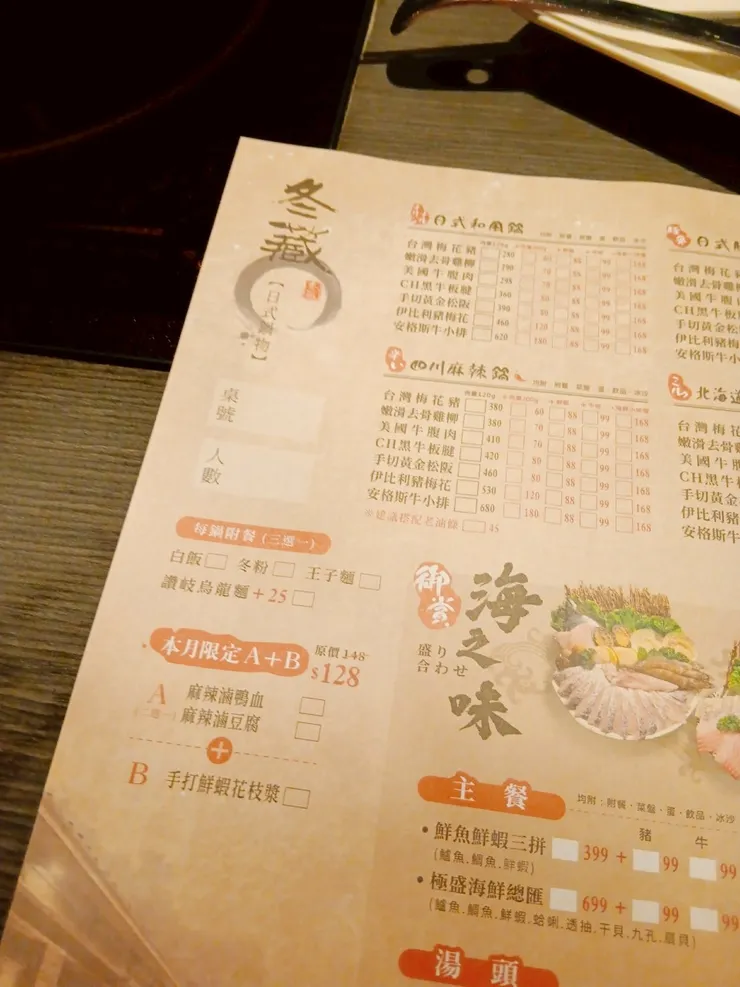 冬藏
【日式鍋物】
桌號
人數
每鍋附餐(三選一)
白飯 冬粉 王子麵
讚岐烏龍麵+25
本月限定A+B 原價148 $128
A 麻辣滷鴨血
(二選一) 麻辣滷豆腐
+
B 手打鮮蝦花枝漿
日式和風鍋
台灣梅花豬 280
嫩滑去骨雞柳 290 88 99 168
美國牛腹肉 298 88 99 168
CH黑牛板腱 360 88 99 168
手切黃金松阪 390 88 99 168
伊比利豬梅花 460 120 88 99 168
安格斯牛小排 620 180 88 99 168
四川麻辣鍋 均附 附餐 菜盤 蛋 飲品 冰沙
肉量120g
台灣梅花豬 380 60 88 99 168
嫩滑去骨雞柳 380 70 88 99 168
美國牛腹肉 410 70 88 99 168
CH黑牛板腱 420 80 88 99 168
手切黃金松阪 460 80 88 99 168
伊比利豬梅花 530 120 88 99 168
安格斯牛小排 680 180 88 99 168
※建議搭配老油條 45
日式
台灣梅花
嫩滑去骨
美國牛
CH黑牛板
手切黃金
伊比利豬梅
安格斯牛
北海道
台灣梅花
嫩滑去骨
美國牛
CH黑牛
手切黃金
伊比利豬
安格斯牛
御賞
海之味
盛り合わせ
主餐 均附:附餐·菜盤·蛋·飲品·冰沙
豬 牛
•鮮魚鮮蝦三拼 399+ 99 99
(鱸魚.鯛魚.鮮蝦)
•極盛海鮮總匯 699+ 99 99
(鱸魚.鯛魚.鮮蝦.蛤蜊.透抽.干貝.九孔.扇貝)
湯頭